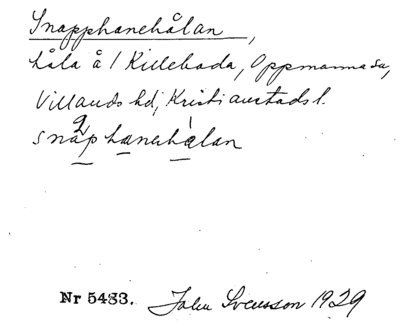 Snapphanehålan,
håla å 1 Killeboda, Oppmanna sn,
Villands hd, Kristianstads l.
snaphanehålan
Nr 5483. John Svensson 1929